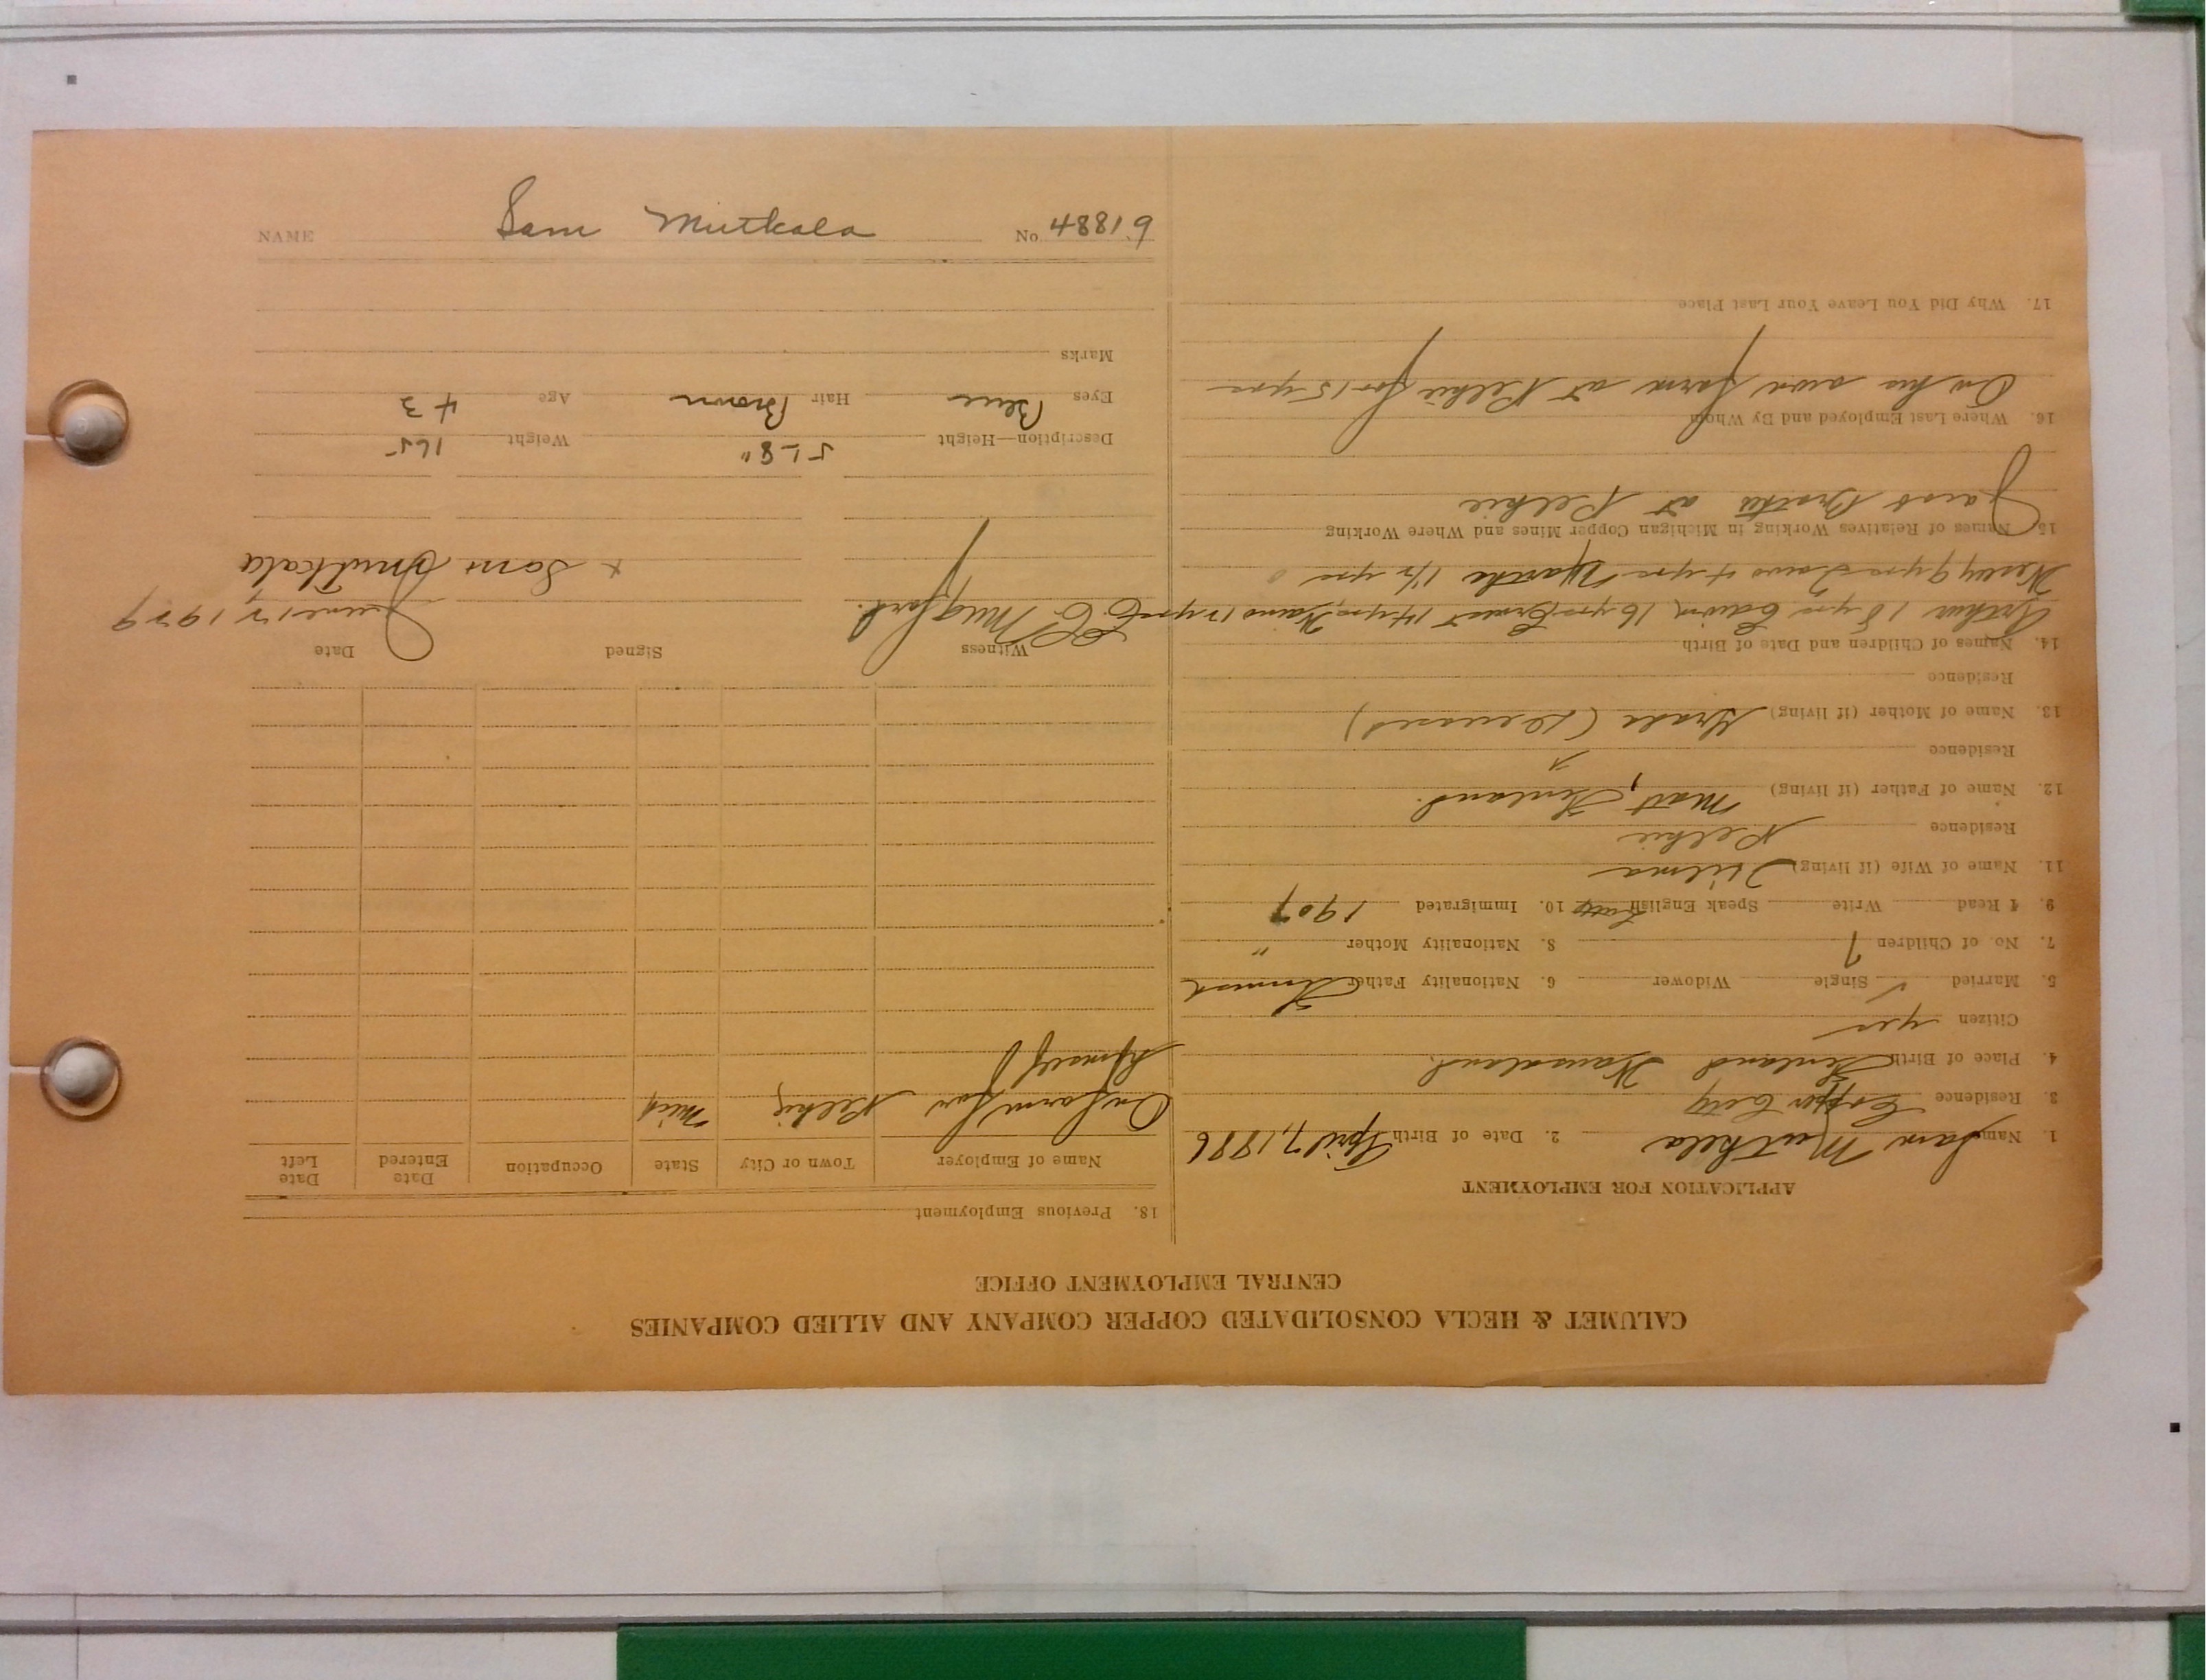 CALUMET & HECLA CONSOLIDATED COPPER COMPANY AND ALLIED COMPANIES
CENTRAL EMPLOYMENT OFFICE
APPLICATION FOR EMPLOYMENT
1. Name Sam Mutkala 2. Date of Birth April 7, 1886
3. Residence Copper City
4. Place of Birth Finland
Citizen yes
5. Married ✓ Single Widower 6. Nationality Father Finnish
7. No. of Children 7 8. Nationality Mother "
9. Read Write Speak English 10. Immigrated 1907
11. Name of Wife (if living) Hilma
Residence Pelkie
12. Name of Father (if living) Matt, Finland.
Residence
13. Name of Mother (if living) (Deceased)
Residence
14. Names of Children and Date of Birth
Arthur 18 yrs Edwin 16 yrs Ernest 14 yrs 12 yrs
9 yrs 4 yrs Martha 1 1/2 yrs
15. Names of Relatives Working in Michigan Copper Mines and Where Working
Jacob Brother at Pelkie
16. Where Last Employed and By Whom
On his own farm at Pelkie for 15 yrs
17. Why Did You Leave Your Last Place
18. Previous Employment
Name of Employer Town or City State Occupation Date Entered Date Left
On farm for Pelkie Mich
himself
Witness Signed Date
Mugford. June 17, 1929
x Sam Mutkala
Description—Height 5'-8" Weight 165
Eyes Blue Hair Brown Age 43
Marks
NAME Sam Mutkala No 48819